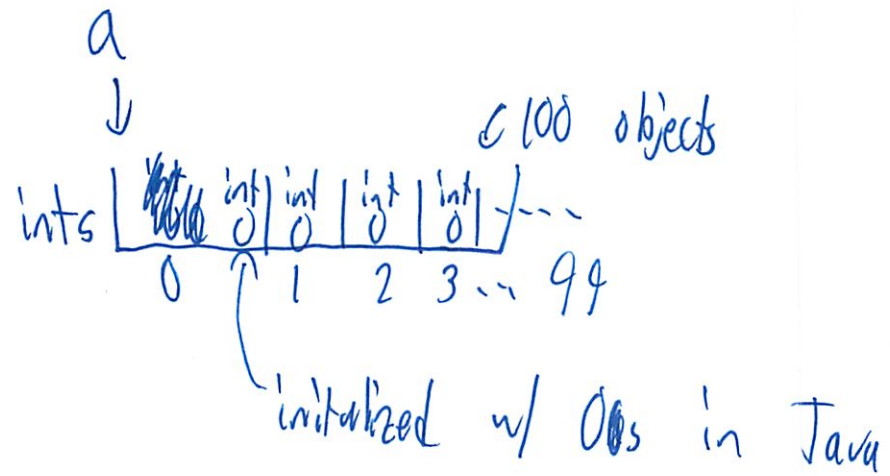 a
100 objects
int int int int
ints 0 0 0 0 ...
0 1 2 3 .. 99
initialized w/ 0s in Java